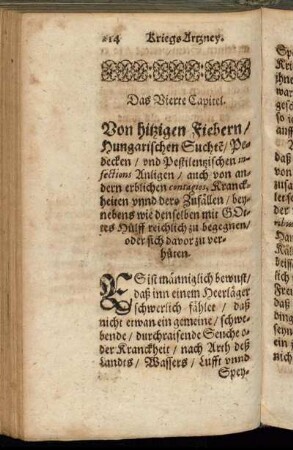 214 Kriegs Artzney.
Das Vierte Capitel.
Von hitzigen Fiebern/
Hungarischen Suchtẽ/ Pe-
decken/ vnd Pestilentzischen in-
fections Anligen/ auch von an-
dern erblichen contagios, Kranck-
heiten vnnd dero Zufällen/ bey-
nebens wie denselben mit GOt-
tes Hülff reichlich zu begegnen/
oder sich davor zu ver-
hüten.
ES ist männiglich bewust/
daß inn einem Heerläger
schwerlich fählet/ daß
nicht etwan ein gemeine/ schwe-
bende/ durchraisende Seuche o-
der Kranckheit/ nach Arth deß
Landts/ Wassers/ Lufft vnnd
Spey-